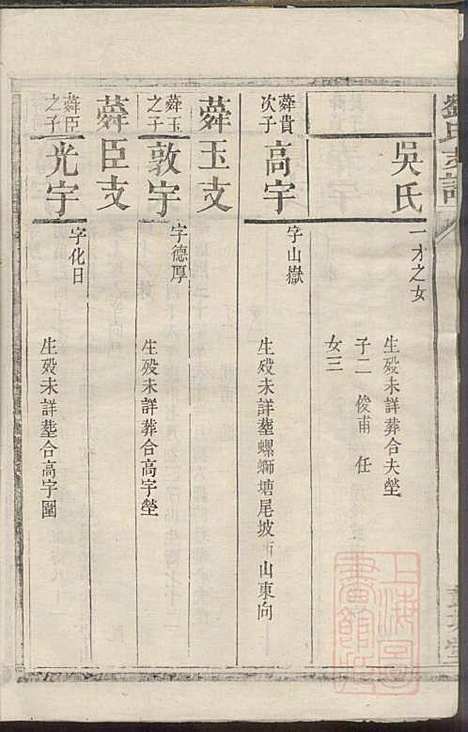 劉氏支譜
吳氏
一才之女
生殁未詳葬合夫塋
子二 俊甫 任
女三
蕣貴次子
高宇
字山嶽
生殁未詳塟螺螄塘尾坡山東向
蕣玉支
蕣玉之子
敦宇
字德厚
生殁未詳葬合高宇塋
蕣臣支
蕣臣之子
光宇
字化日
生殁未詳塟合高宇圍
上海圖書館藏